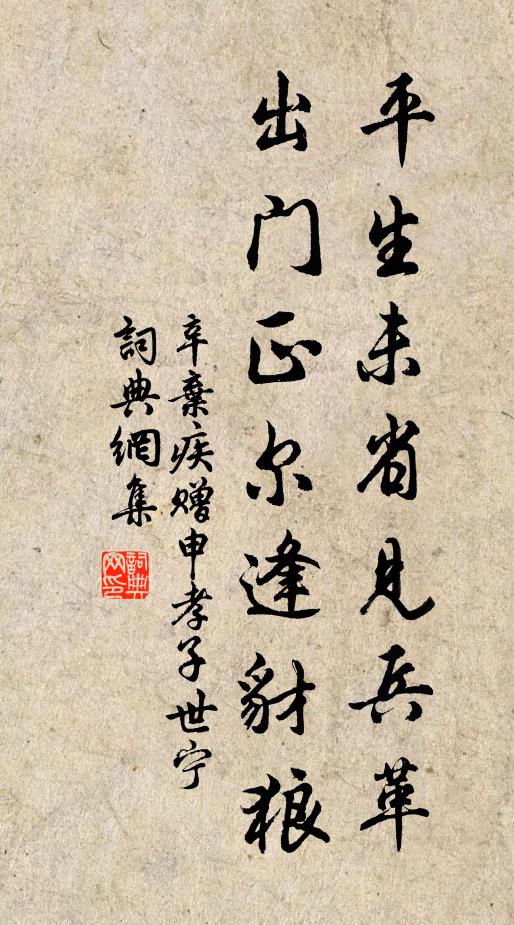 平生未省見兵革
出门正尔逢豺狼
辛棄疾赠申孝子世宁
詞典網集
詞典网印